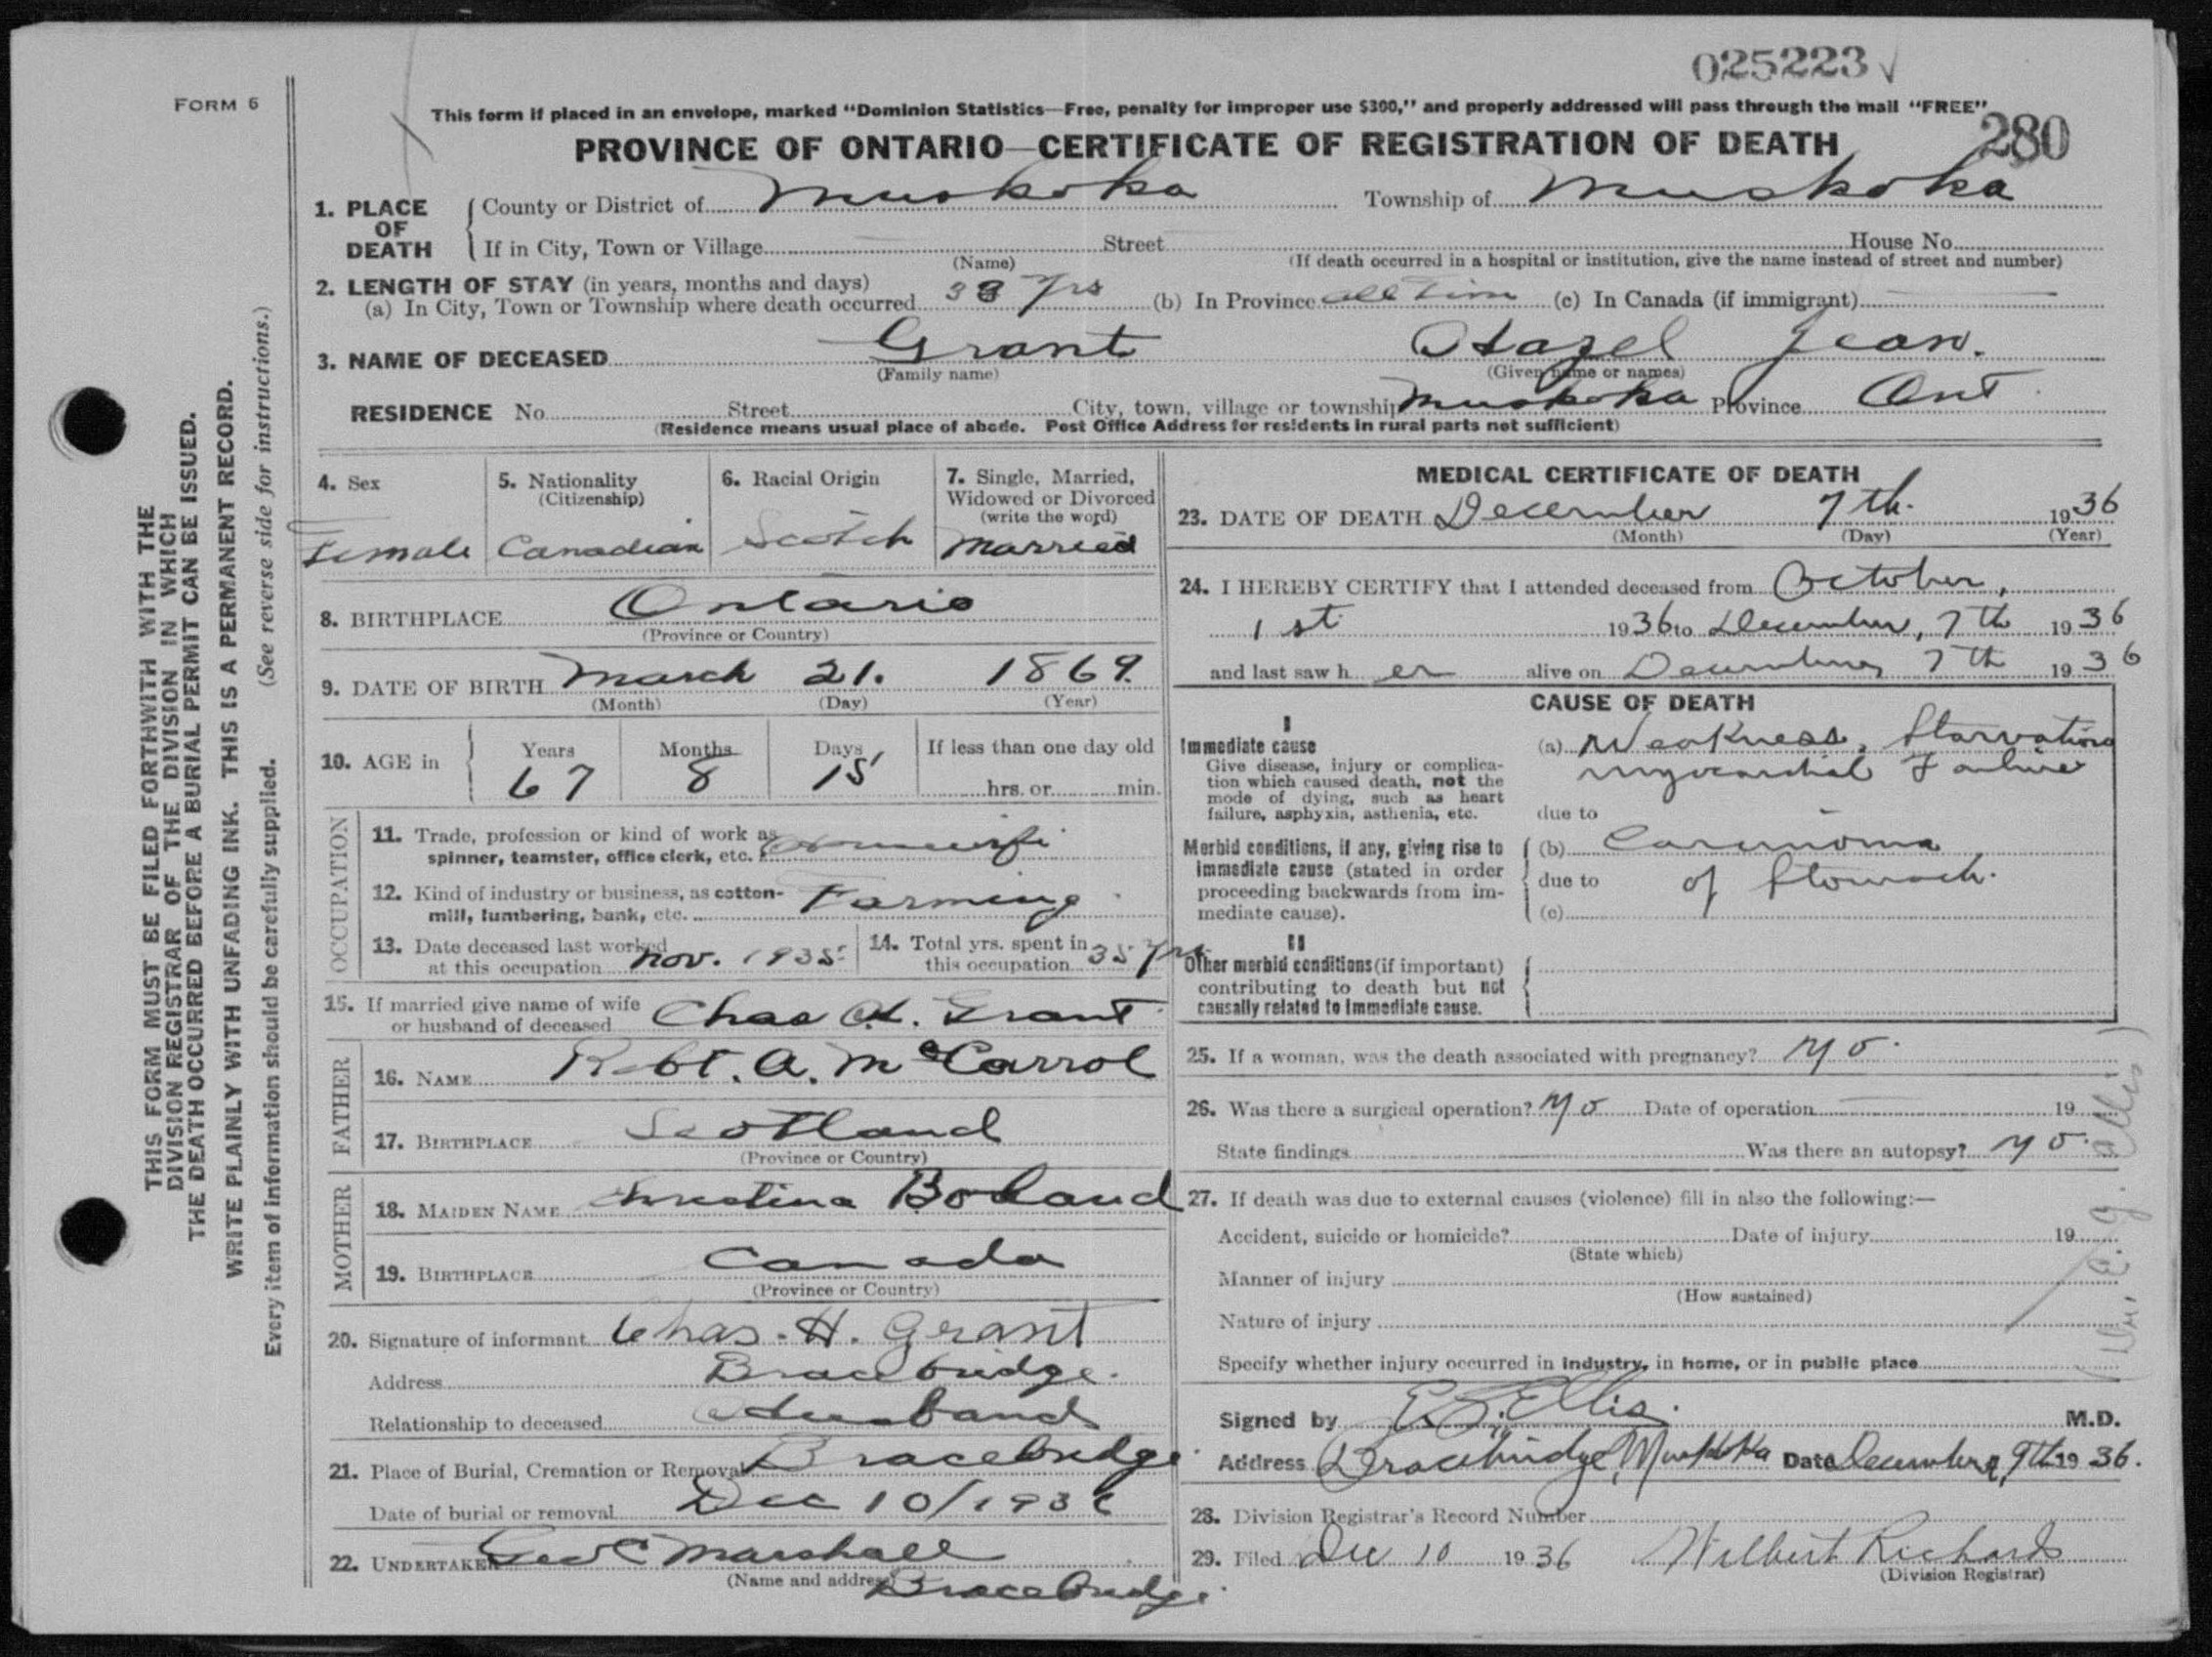 025223
FORM 6
This form if placed in an envelope, marked “Dominion Statistics—Free, penalty for improper use $300,” and properly addressed will pass through the mail “FREE”
280
PROVINCE OF ONTARIO—CERTIFICATE OF REGISTRATION OF DEATH
1. PLACE OF DEATH { County or District of Muskoka Township of Muskoka
If in City, Town or Village Street House No.
(Name) (If death occurred in a hospital or institution, give the name instead of street and number)
2. LENGTH OF STAY (in years, months and days)
(a) In City, Town or Township where death occurred 38 yrs (b) In Province all Time (c) In Canada (if immigrant)
3. NAME OF DECEASED Grant Hazel Jean.
(Family name) (Given name or names)
RESIDENCE No. Street City, town, village or township Muskoka Province Ont
(Residence means usual place of abode. Post Office Address for residents in rural parts not sufficient)
4. Sex
Female
5. Nationality
(Citizenship)
Canadian
6. Racial Origin
Scotch
7. Single, Married,
Widowed or Divorced
(write the word)
Married
8. BIRTHPLACE Ontario
(Province or Country)
9. DATE OF BIRTH March 21. 1869.
(Month) (Day) (Year)
10. AGE in Years Months Days If less than one day old
67 8 15 hrs. or min.
OCCUPATION
11. Trade, profession or kind of work as
spinner, teamster, office clerk, etc.
12. Kind of industry or business, as cotton- Farming
mill, lumbering, bank, etc.
13. Date deceased last worked
at this occupation Nov. 1935
14. Total yrs. spent in
this occupation 35 yrs
15. If married give name of wife
or husband of deceased Chas H. Grant
FATHER
16. NAME Robt. A. McCarrol
17. BIRTHPLACE Scotland
(Province or Country)
MOTHER
18. MAIDEN NAME Christina Boland
19. BIRTHPLACE Canada
(Province or Country)
20. Signature of informant Chas. H. Grant
Address Bracebridge.
Relationship to deceased Husband
21. Place of Burial, Cremation or Removal Bracebridge
Date of burial or removal Dec 10/1936
22. UNDERTAKER Geo C Marshall
(Name and address) Bracebridge
MEDICAL CERTIFICATE OF DEATH
23. DATE OF DEATH December 7th. 1936
(Month) (Day) (Year)
24. I HEREBY CERTIFY that I attended deceased from October,
1st 1936 to December, 7th 1936
and last saw h er alive on December 7th 1936
CAUSE OF DEATH
I
Immediate cause
Give disease, injury or complica-
tion which caused death, not the
mode of dying, such as heart
failure, asphyxia, asthenia, etc.
(a) Weakness, Starvation
myocardial Failure
due to
Morbid conditions, if any, giving rise to
immediate cause (stated in order
proceeding backwards from im-
mediate cause).
(b) Carcinoma
due to of Stomach.
(c)
II
Other morbid conditions (if important)
contributing to death but not
causally related to immediate cause.
25. If a woman, was the death associated with pregnancy? No.
26. Was there a surgical operation? No Date of operation 19
State findings Was there an autopsy? No.
27. If death was due to external causes (violence) fill in also the following:—
Accident, suicide or homicide? Date of injury 19
(State which)
Manner of injury
(How sustained)
Nature of injury
Specify whether injury occurred in industry, in home, or in public place
Signed by E.G. Ellis. M.D.
Address Bracebridge, Muskoka Date December, 9th 1936.
28. Division Registrar's Record Number
29. Filed Dec 10 1936 Wilbert Richards
(Division Registrar)
THIS FORM MUST BE FILED FORTHWITH WITH THE
DIVISION REGISTRAR OF THE DIVISION IN WHICH
THE DEATH OCCURRED BEFORE A BURIAL PERMIT CAN BE ISSUED.
WRITE PLAINLY WITH UNFADING INK. THIS IS A PERMANENT RECORD.
Every item of information should be carefully supplied. (See reverse side for instructions.)
(Dr. E. G. Ellis)